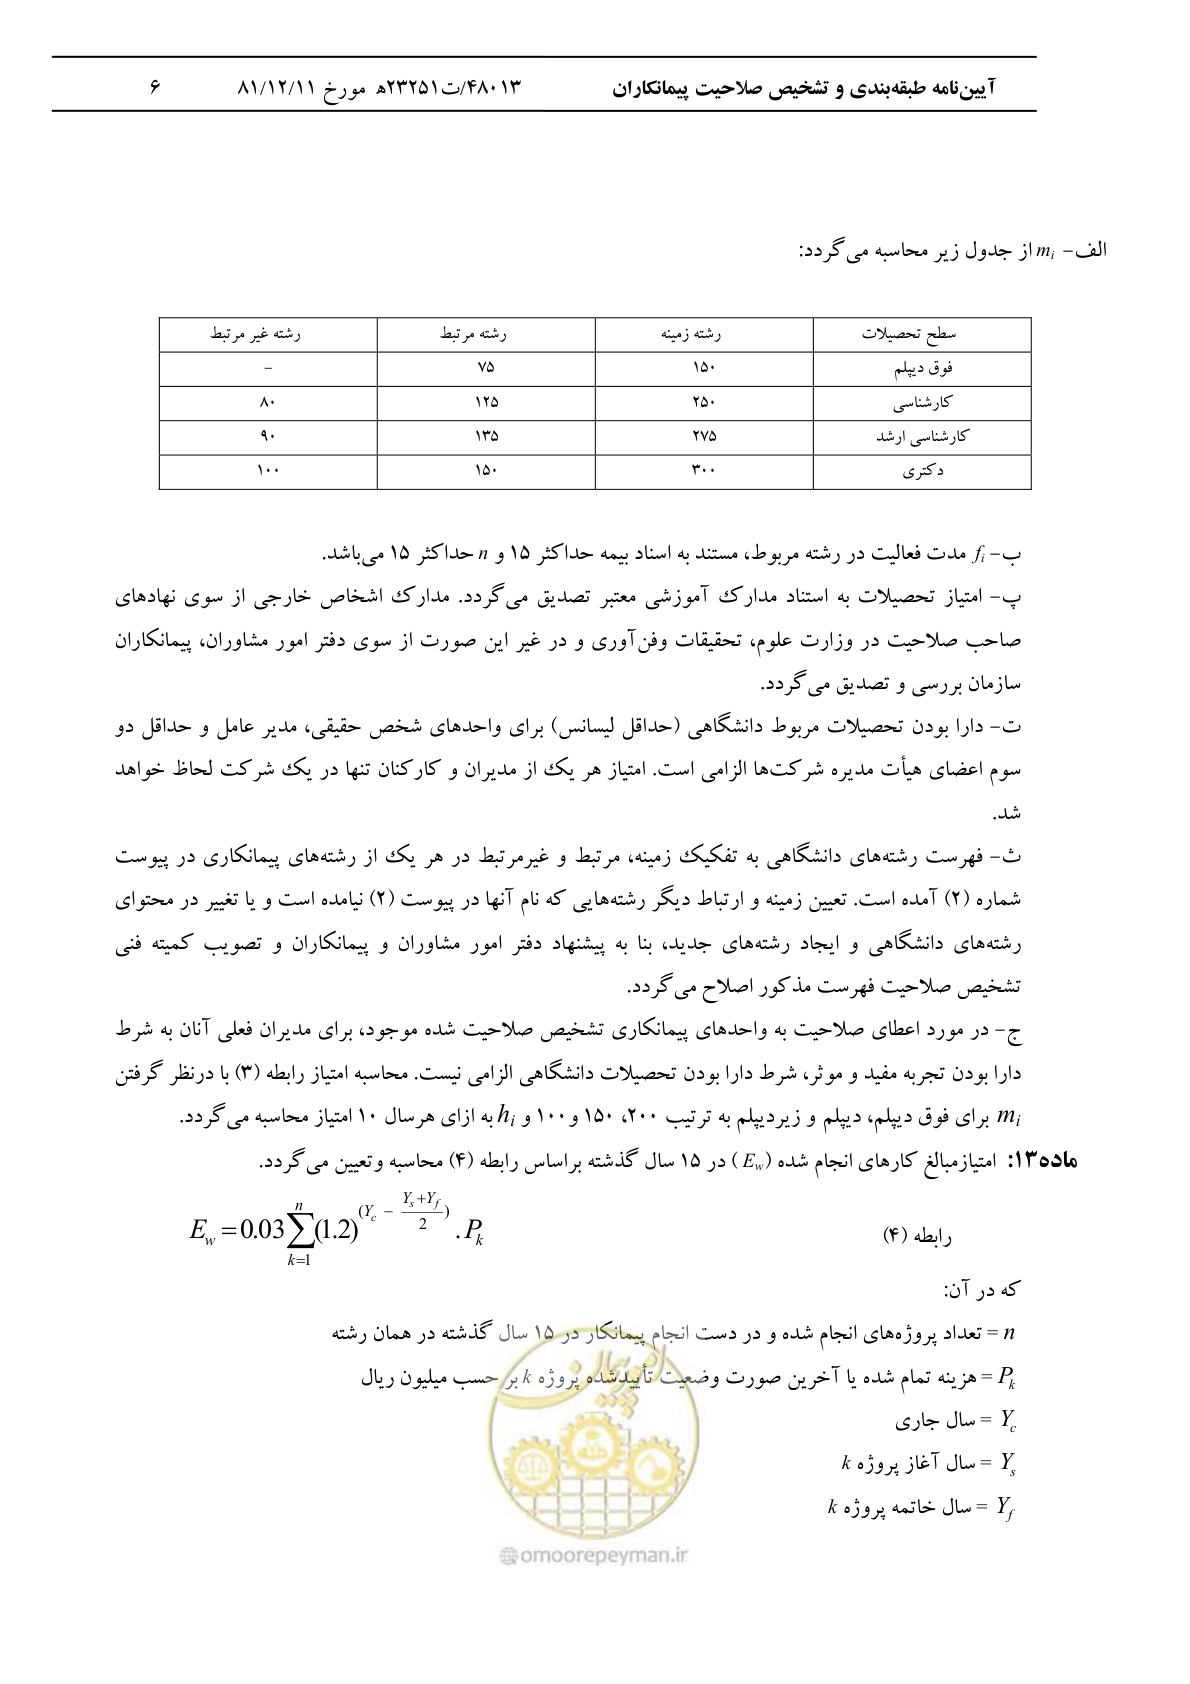 آیین‌نامه طبقه‌بندی و تشخیص صلاحیت پیمانکاران ۴۸۰۱۳/ت۲۳۲۵۱ه مورخ ۸۱/۱۲/۱۱ ۶
الف- mi از جدول زیر محاسبه می‌گردد:
سطح تحصیلات رشته زمینه رشته مرتبط رشته غیر مرتبط
فوق دیپلم ۱۵۰ ۷۵ –
کارشناسی ۲۵۰ ۱۲۵ ۸۰
کارشناسی ارشد ۲۷۵ ۱۳۵ ۹۰
دکتری ۳۰۰ ۱۵۰ ۱۰۰
ب- fi مدت فعالیت در رشته مربوط، مستند به اسناد بیمه حداکثر ۱۵ و n حداکثر ۱۵ می‌باشد.
پ- امتیاز تحصیلات به استناد مدارک آموزشی معتبر تصدیق می‌گردد. مدارک اشخاص خارجی از سوی نهادهای
صاحب صلاحیت در وزارت علوم، تحقیقات وفن‌آوری و در غیر این صورت از سوی دفتر امور مشاوران، پیمانکاران
سازمان بررسی و تصدیق می‌گردد.
ت- دارا بودن تحصیلات مربوط دانشگاهی (حداقل لیسانس) برای واحدهای شخص حقیقی، مدیر عامل و حداقل دو
سوم اعضای هیأت مدیره شرکت‌ها الزامی است. امتیاز هر یک از مدیران و کارکنان تنها در یک شرکت لحاظ خواهد
شد.
ث- فهرست رشته‌های دانشگاهی به تفکیک زمینه، مرتبط و غیرمرتبط در هر یک از رشته‌های پیمانکاری در پیوست
شماره (۲) آمده است. تعیین زمینه و ارتباط دیگر رشته‌هایی که نام آنها در پیوست (۲) نیامده است و یا تغییر در محتوای
رشته‌های دانشگاهی و ایجاد رشته‌های جدید، بنا به پیشنهاد دفتر امور مشاوران و پیمانکاران و تصویب کمیته فنی
تشخیص صلاحیت فهرست مذکور اصلاح می‌گردد.
ج- در مورد اعطای صلاحیت به واحدهای پیمانکاری تشخیص صلاحیت شده موجود، برای مدیران فعلی آنان به شرط
دارا بودن تجربه مفید و موثر، شرط دارا بودن تحصیلات دانشگاهی الزامی نیست. محاسبه امتیاز رابطه (۳) با درنظر گرفتن
mi برای فوق دیپلم، دیپلم و زیردیپلم به ترتیب ۲۰۰، ۱۵۰ و۱۰۰ و hi به ازای هرسال ۱۰ امتیاز محاسبه می‌گردد.
ماده۱۳: امتیازمبالغ کارهای انجام شده (Ew) در ۱۵ سال گذشته براساس رابطه (۴) محاسبه وتعیین می‌گردد.
رابطه (۴) E_w = 0.03 ∑_{k=1}^{n} (1.2)^{(Y_c – (Y_s+Y_f)/2)} . P_k
که در آن:
n = تعداد پروژه‌های انجام شده و در دست انجام پیمانکار در ۱۵ سال گذشته در همان رشته
Pk = هزینه تمام شده یا آخرین صورت وضعیت تأییدشده پروژه k بر حسب میلیون ریال
Yc = سال جاری
Ys = سال آغاز پروژه k
Yf = سال خاتمه پروژه k
امور پیمان
@omoorepeyman.ir